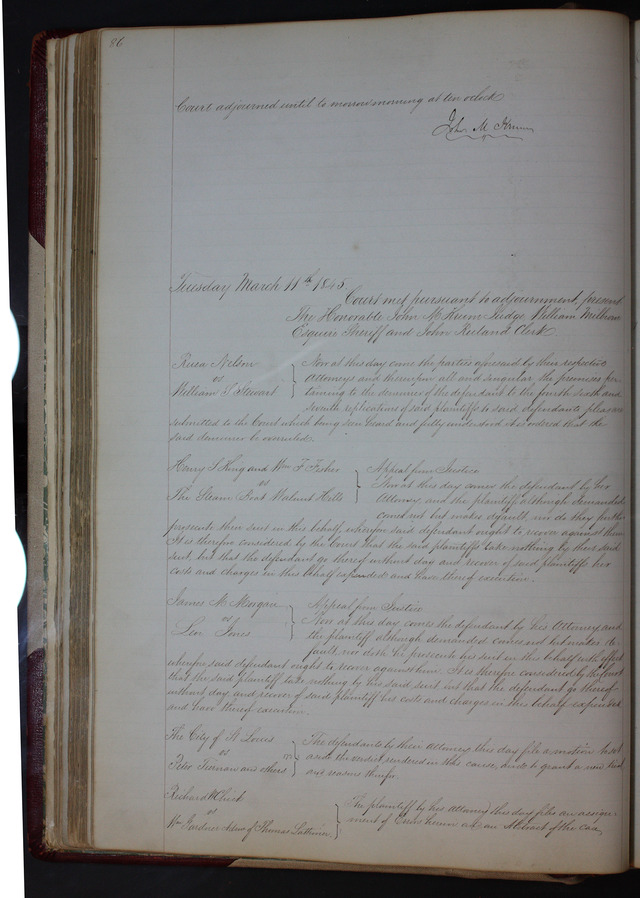 86
Court adjourned until to morrow morning at ten oclock
John M Krum
Tuesday March 11th 1845.
Court met pursuant to adjournment, present
The Honorable John M. Krum Judge, William Milburn
Esquire Sheriff and John Ruland Clerk.
Nelson
vs
William S Stewart
Now at this day come the parties aforesaid by their respective
Attorneys and thereupon all and singular the premises per-
taining to the demurrer of the defendant to the fourth sixth and
seventh replication of said plaintiffs to said defendants pleas
submitted to the Court which being seen heard and fully understood it is ordered that the
said demurrer be overruled.
Henry S King and Wm F Fisher
vs
The Steam Boat Walnut Hills
Appeal from Justice
Now at this day comes the defendant by her
Attorney and the plaintiff although demanded
comes not but makes default, nor do they further
prosecute their suit in this behalf wherefore said defendant ought to recover against them
It is therefore considered by the Court that the said plaintiffs take nothing by their said
suit, but that the defendant go thereof without day and recover of said plaintiffs her
costs and charges in this behalf expended and have thereof execution.
James M Morgan
vs
Jones
Appeal from Justice
Now at this day comes the defendant by his Attorney and
the plaintiff although demanded comes not but makes de-
fault, nor doth he prosecute his suit in this behalf with effect
wherefore said defendant ought to recover against him. It is therefore considered by the Court
that the said plaintiff take nothing by his said suit, but that the defendant go thereof
without day and recover of said plaintiff his costs and charges in this behalf expended
and have thereof execution.
The City of St Louis
vs
Peter Tiernan and others
The defendants by their attorney this day file a motion to set
aside the verdict rendered in this cause, and to grant a new trial
and reasons therefor
Richard W Ulrick
vs
Wm Gardner Admr of Thomas
The plaintiff by his Attorney this day files an assign-
ment of Errors herein also an Abstract of the case